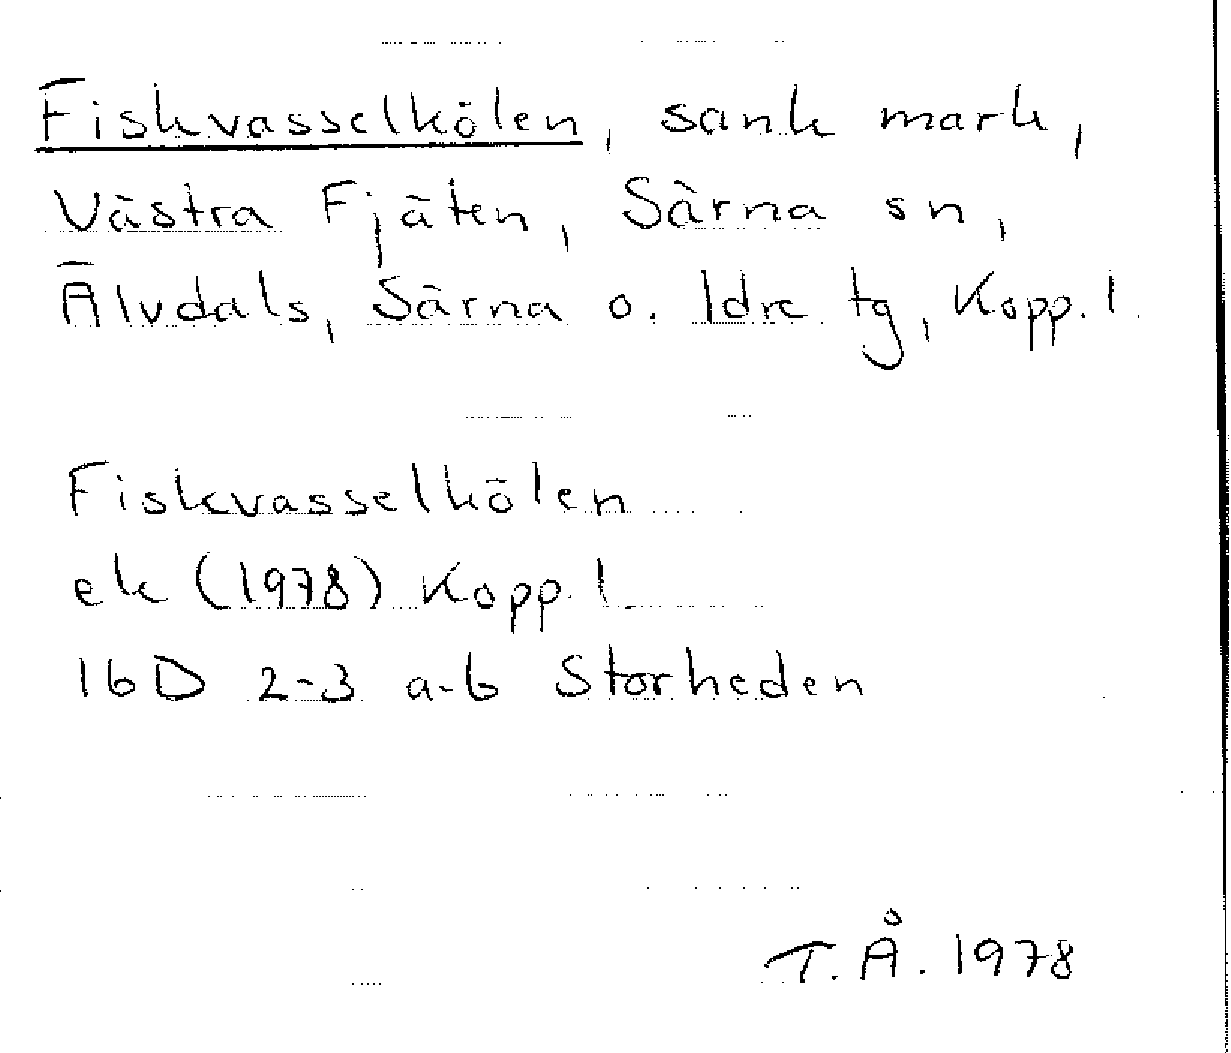 Fiskvasselkölen, sank mark,
Västra Fjäten, Särna sn,
Älvdals, Särna o. Idre tg, Kopp. l
Fiskvasselkölen
ek (1978) Kopp. l
16D 2-3 a-b Storheden
T.Å. 1978